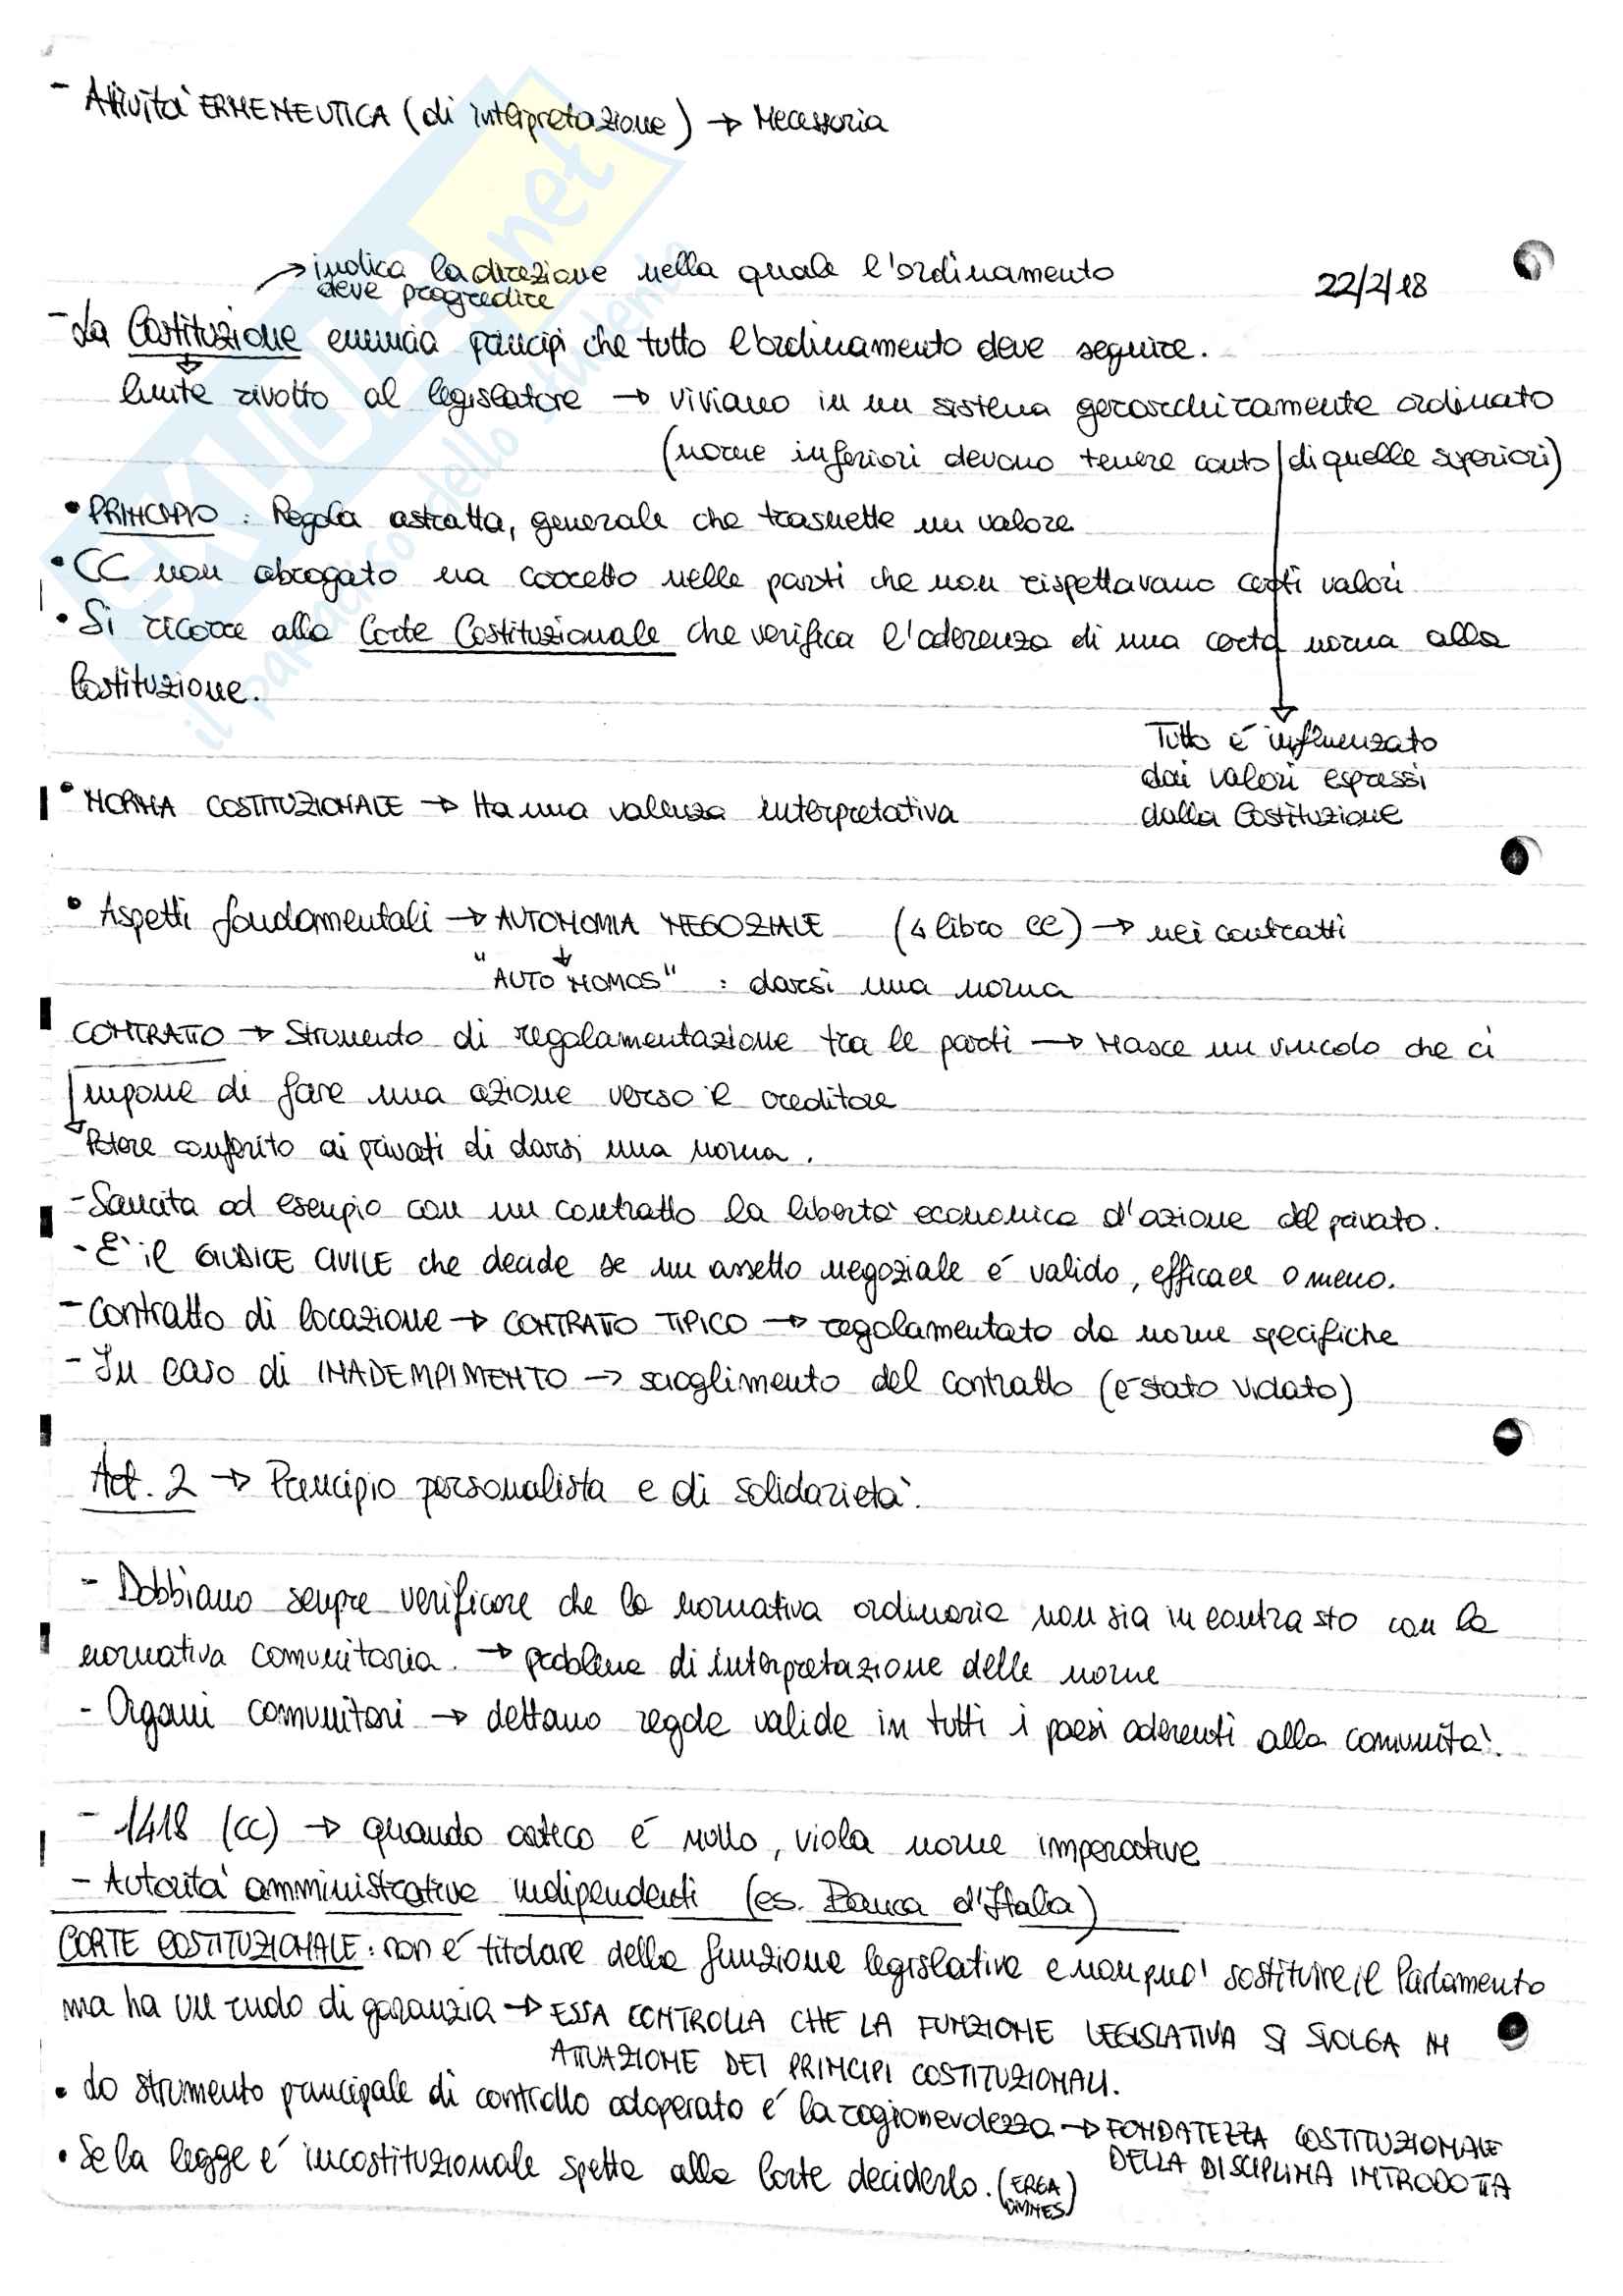 - Attività ERMENEUTICA (di interpretazione) → Necessaria
→ indica la direzione nella quale l'ordinamento
deve progredire
22/2/18
- La Costituzione enuncia principi che tutto l'ordinamento deve seguire.
limite rivolto al legislatore → viviamo in un sistema gerarchicamente ordinato
(norme inferiori devono tenere conto di quelle superiori)
• PRINCIPIO : Regola astratta, generale che trasmette un valore
• CC non abrogato ma corretto nelle parti che non rispettavano certi valori
• Si ricorre alla Corte Costituzionale che verifica l'aderenza di una certa norma alla
Costituzione.
Tutto é influenzato
dai valori espressi
dalla Costituzione
• NORMA COSTITUZIONALE → Ha una valenza interpretativa
• Aspetti fondamentali → AUTONOMIA NEGOZIALE (4 libro CC) → nei contratti
"AUTO NOMOS" : darsi una norma
CONTRATTO → Strumento di regolamentazione tra le parti → Nasce un vincolo che ci
impone di fare una azione verso il creditore
Potere conferito ai privati di darsi una norma.
- Sancita ad esempio con un contratto la libertà economica d'azione del privato.
- E' il GIUDICE CIVILE che decide se un assetto negoziale é valido, efficace o meno.
- Contratto di locazione → CONTRATTO TIPICO → regolamentato da norme specifiche
- In caso di INADEMPIMENTO → scioglimento del contratto (é stato violato)
Art. 2 → Principio personalista e di solidarietà.
- Dobbiamo sempre verificare che la normativa ordinaria non sia in contrasto con la
normativa comunitaria. → problema di interpretazione delle norme
- Organi comunitari → dettano regole valide in tutti i paesi aderenti alla comunità.
- 1418 (CC) → quando é nullo, viola norme imperative
- Autorità amministrative indipendenti (es. Banca d'Italia)
CORTE COSTITUZIONALE : non é titolare della funzione legislativa e non puo' sostituire il Parlamento
ma ha un ruolo di garanzia → ESSA CONTROLLA CHE LA FUNZIONE LEGISLATIVA SI SVOLGA IN
ATTUAZIONE DEI PRINCIPI COSTITUZIONALI.
• Lo strumento principale di controllo adoperato é la ragionevolezza → FONDATEZZA COSTITUZIONALE
DELLA DISCIPLINA INTRODOTTA
• Se la legge é incostituzionale spetta alla Corte deciderlo. (ERGA
OMNES)